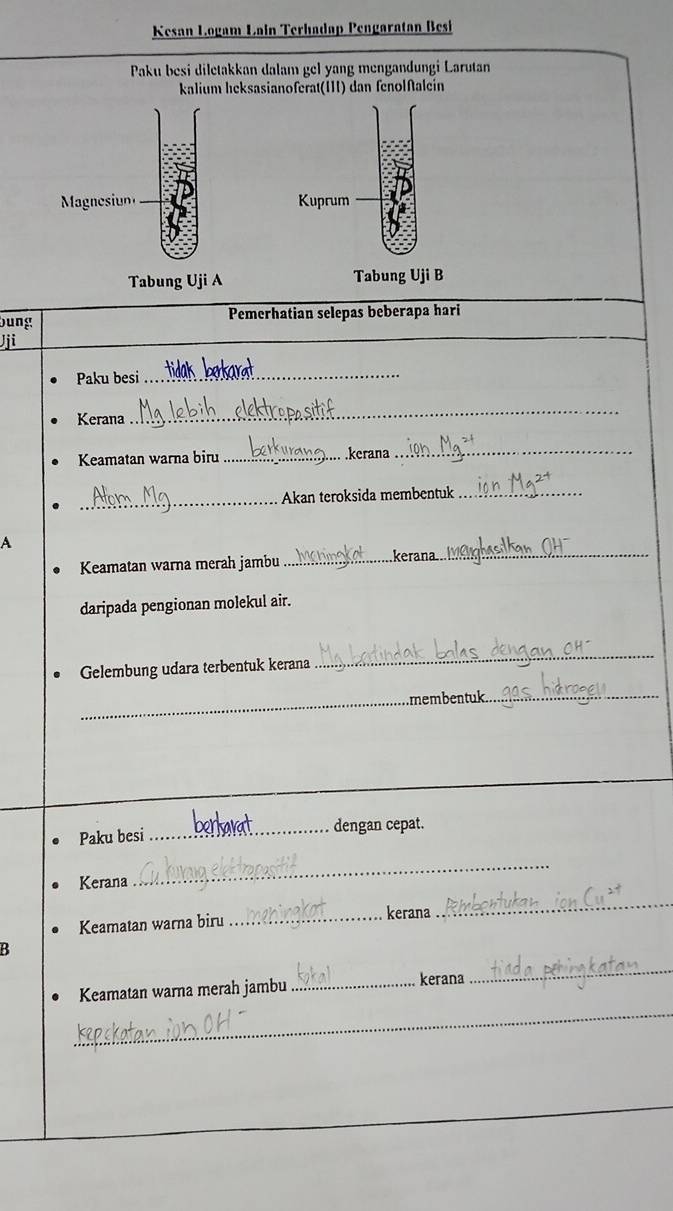 Kesan Logam Lain Terhadap Pengaratan Besi
Paku besi diletakkan dalam gel yang mengandungi Larutan
kalium heksasianoferat(III) dan fenolftalein
Magnesium
Kuprum
Tabung Uji A
Tabung Uji B
bung
Uji
Pemerhatian selepas beberapa hari
• Paku besi ... tidak berkarat ...
• Kerana ... Mg lebih elektropositif ...
• Keamatan warna biru ... berkurang ... .kerana ... ion Mg²⁺ ...
• ... Atom Mg ... Akan teroksida membentuk ... ion Mg²⁺ ...
A
• Keamatan warna merah jambu ... meningkat ... kerana... menghasilkan OH⁻ ...
daripada pengionan molekul air.
• Gelembung udara terbentuk kerana ... Mg bertindak balas dengan OH⁻ ...
... .membentuk... gas hidrogen ...
• Paku besi ... berkarat ... dengan cepat.
• Kerana ... Cu kurang elektropositif ...
• Keamatan warna biru ... meningkat ... kerana ... Pembentukan ion Cu²⁺ ...
B
• Keamatan warna merah jambu ... kekal ... kerana ... tiada peningkatan ...
kepekatan ion OH⁻ ...